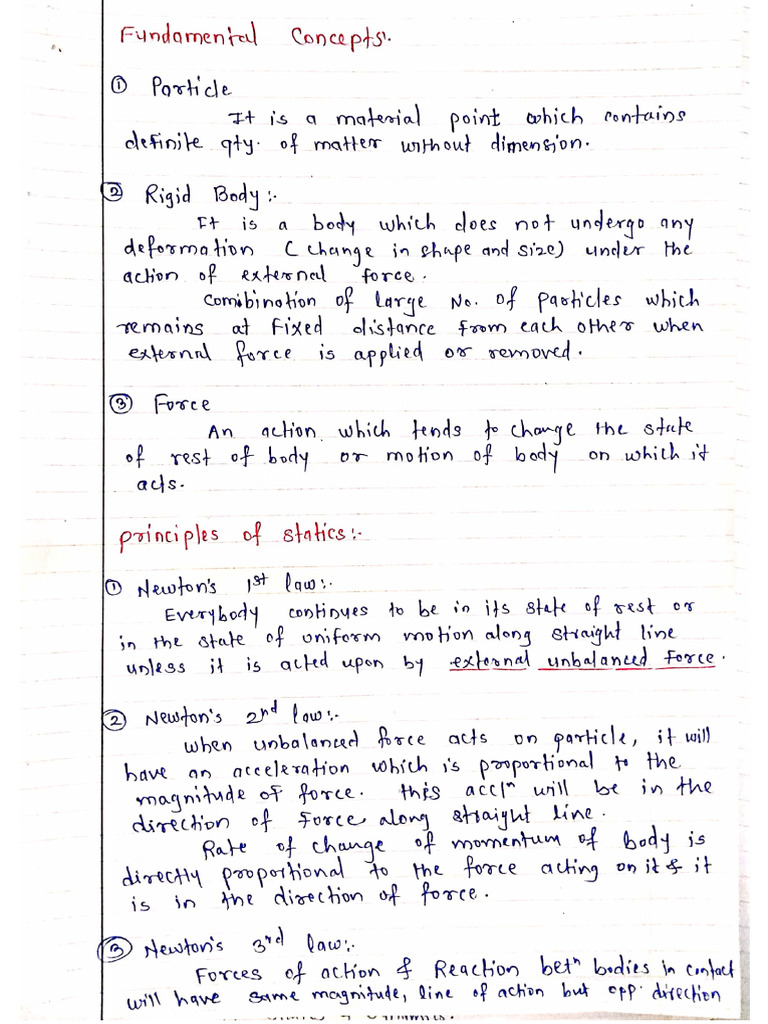 Fundamental Concepts:.
① Particle
It is a material point which contains
definite qty. of matter without dimension.
② Rigid Body:.
It is a body which does not undergo any
deformation (change in shape and size) under the
action of external force.
Combination of large No. of particles which
remains at fixed distance from each other when
external force is applied or removed.
③ Force
An action which tends to change the state
of rest of body or motion of body on which it
acts.
principles of statics:.
① Newton's 1st law:.
Everybody continues to be in its state of rest or
in the state of uniform motion along straight line
unless it is acted upon by external unbalanced force.
② Newton's 2nd law:-
When unbalanced force acts on particle, it will
have an acceleration which is proportional to the
magnitude of force. this accln will be in the
direction of force along straight line.
Rate of change of momentum of body is
directly proportional to the force acting on it & it
is in the direction of force.
③ Newton's 3rd law:.
Forces of action & Reaction betn bodies in contact
will have same magnitude, line of action but opp. direction